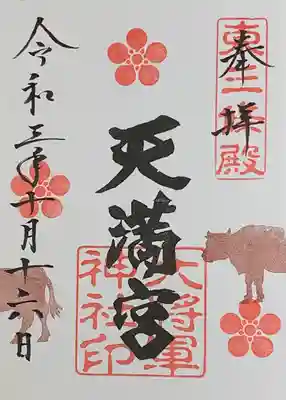 東三條殿
奉拝
天満宮
大将軍
神社印
令和三年十月十六日